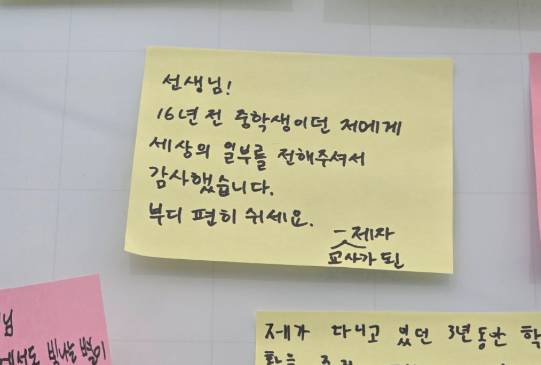 선생님!
16년 전 중학생이던 저에게
세상의 일부를 전해주셔서
감사했습니다.
부디 편히 쉬세요.
- 제자
교사가 된
님
빛나는
제가 다니고 있던 3년동안 학